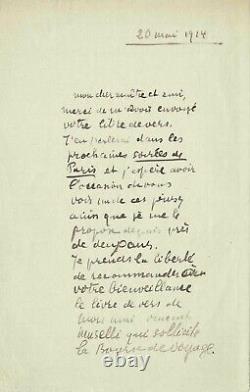 20 mai 1914
mon cher maître et ami,
merci de m'avoir envoyé
votre livre de vers.
J'en parlerai dans les
prochaines soirées de
Paris et j'espère avoir
l'occasion de vous
voir un de ces jours
ainsi que je me le
propose depuis près
de deux ans.
Je prends la liberté
de recommander à
votre bienveillance
le livre de vers de
mon ami
qui sollicite
la Bourse de Voyage.